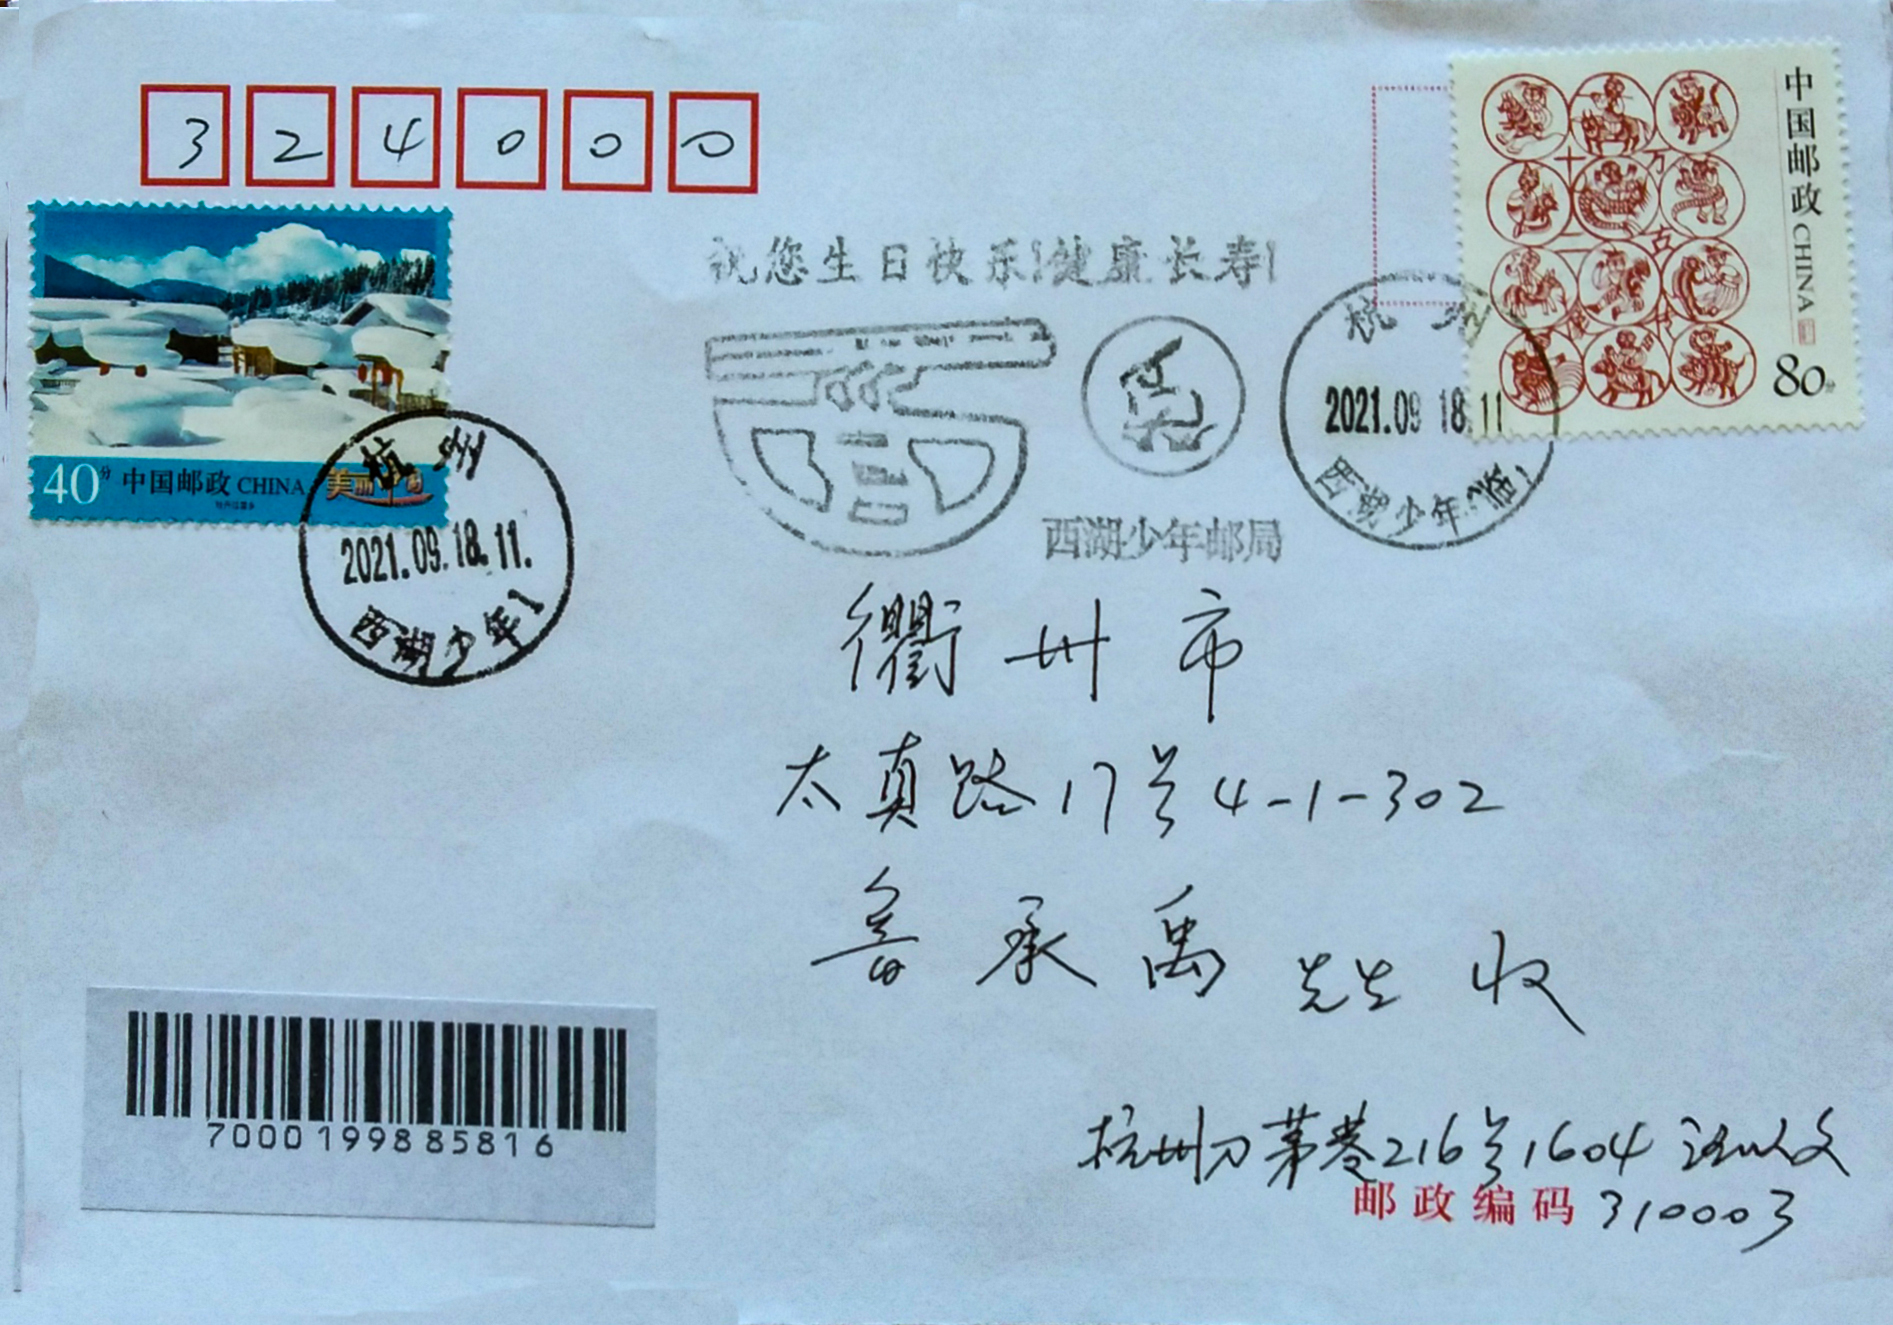 324000
中国邮政 CHINA
80分
十万
古
祝您生日快乐!健康长寿!
杭州
2021.09.18.11
西湖少年(临)
西湖少年邮局
40分 中国邮政 CHINA 美丽中国
杭州
2021.09.18.11.
西湖少年1
衢州市
太真路17号4-1-302
鲁承禹先生收
70001998 85816
杭州刀茅巷216号1604
邮政编码 310003